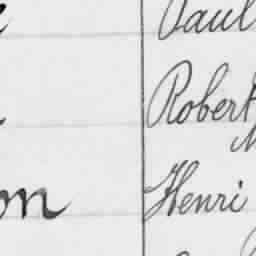 Paul
Robert
on Henri